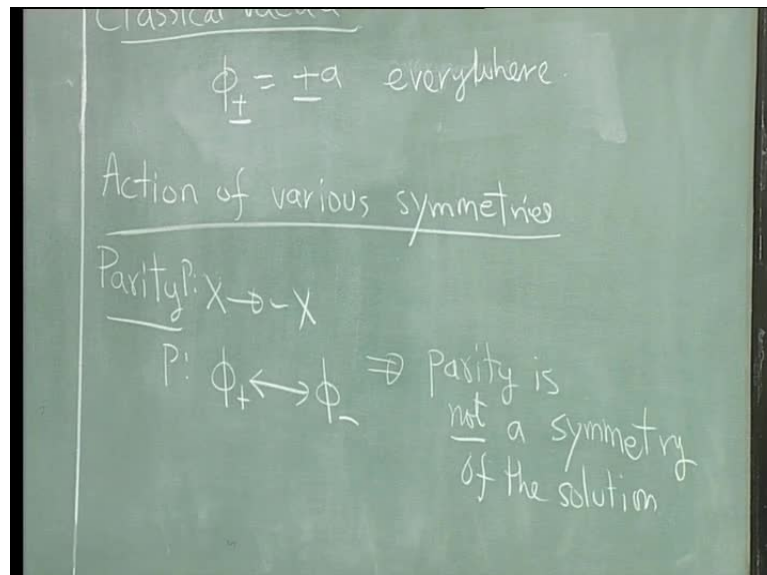 Classical vacua
ϕ± = ±a everywhere.
Action of various symmetries
Parity P: X → -X
P: ϕ+ ↔ ϕ- ⇒ Parity is
not a symmetry
of the solution